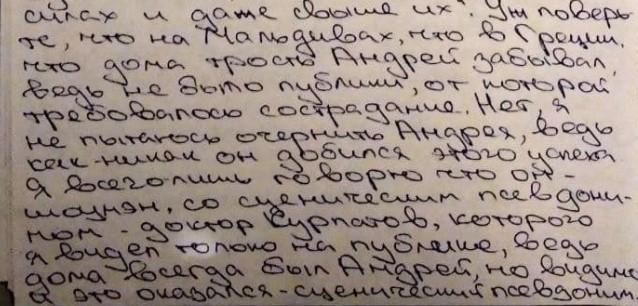 силах и даже свыше их". Уж поверь-
те, что на Мальдивах, что в Греции,
что дома трость Андрей забывал,
ведь не было публики, от которой
требовалось сострадание. Нет, я
не пытаюсь очернить Андрея, ведь
как-никак он добился этого успеха
Я всего лишь говорю что он -
шоумэн, со сценическим псевдони-
мом - доктор Курпатов, которого
я видел только на публике, ведь
дома всегда был Андрей, но видимо
и это оказался - сценический псевдоним